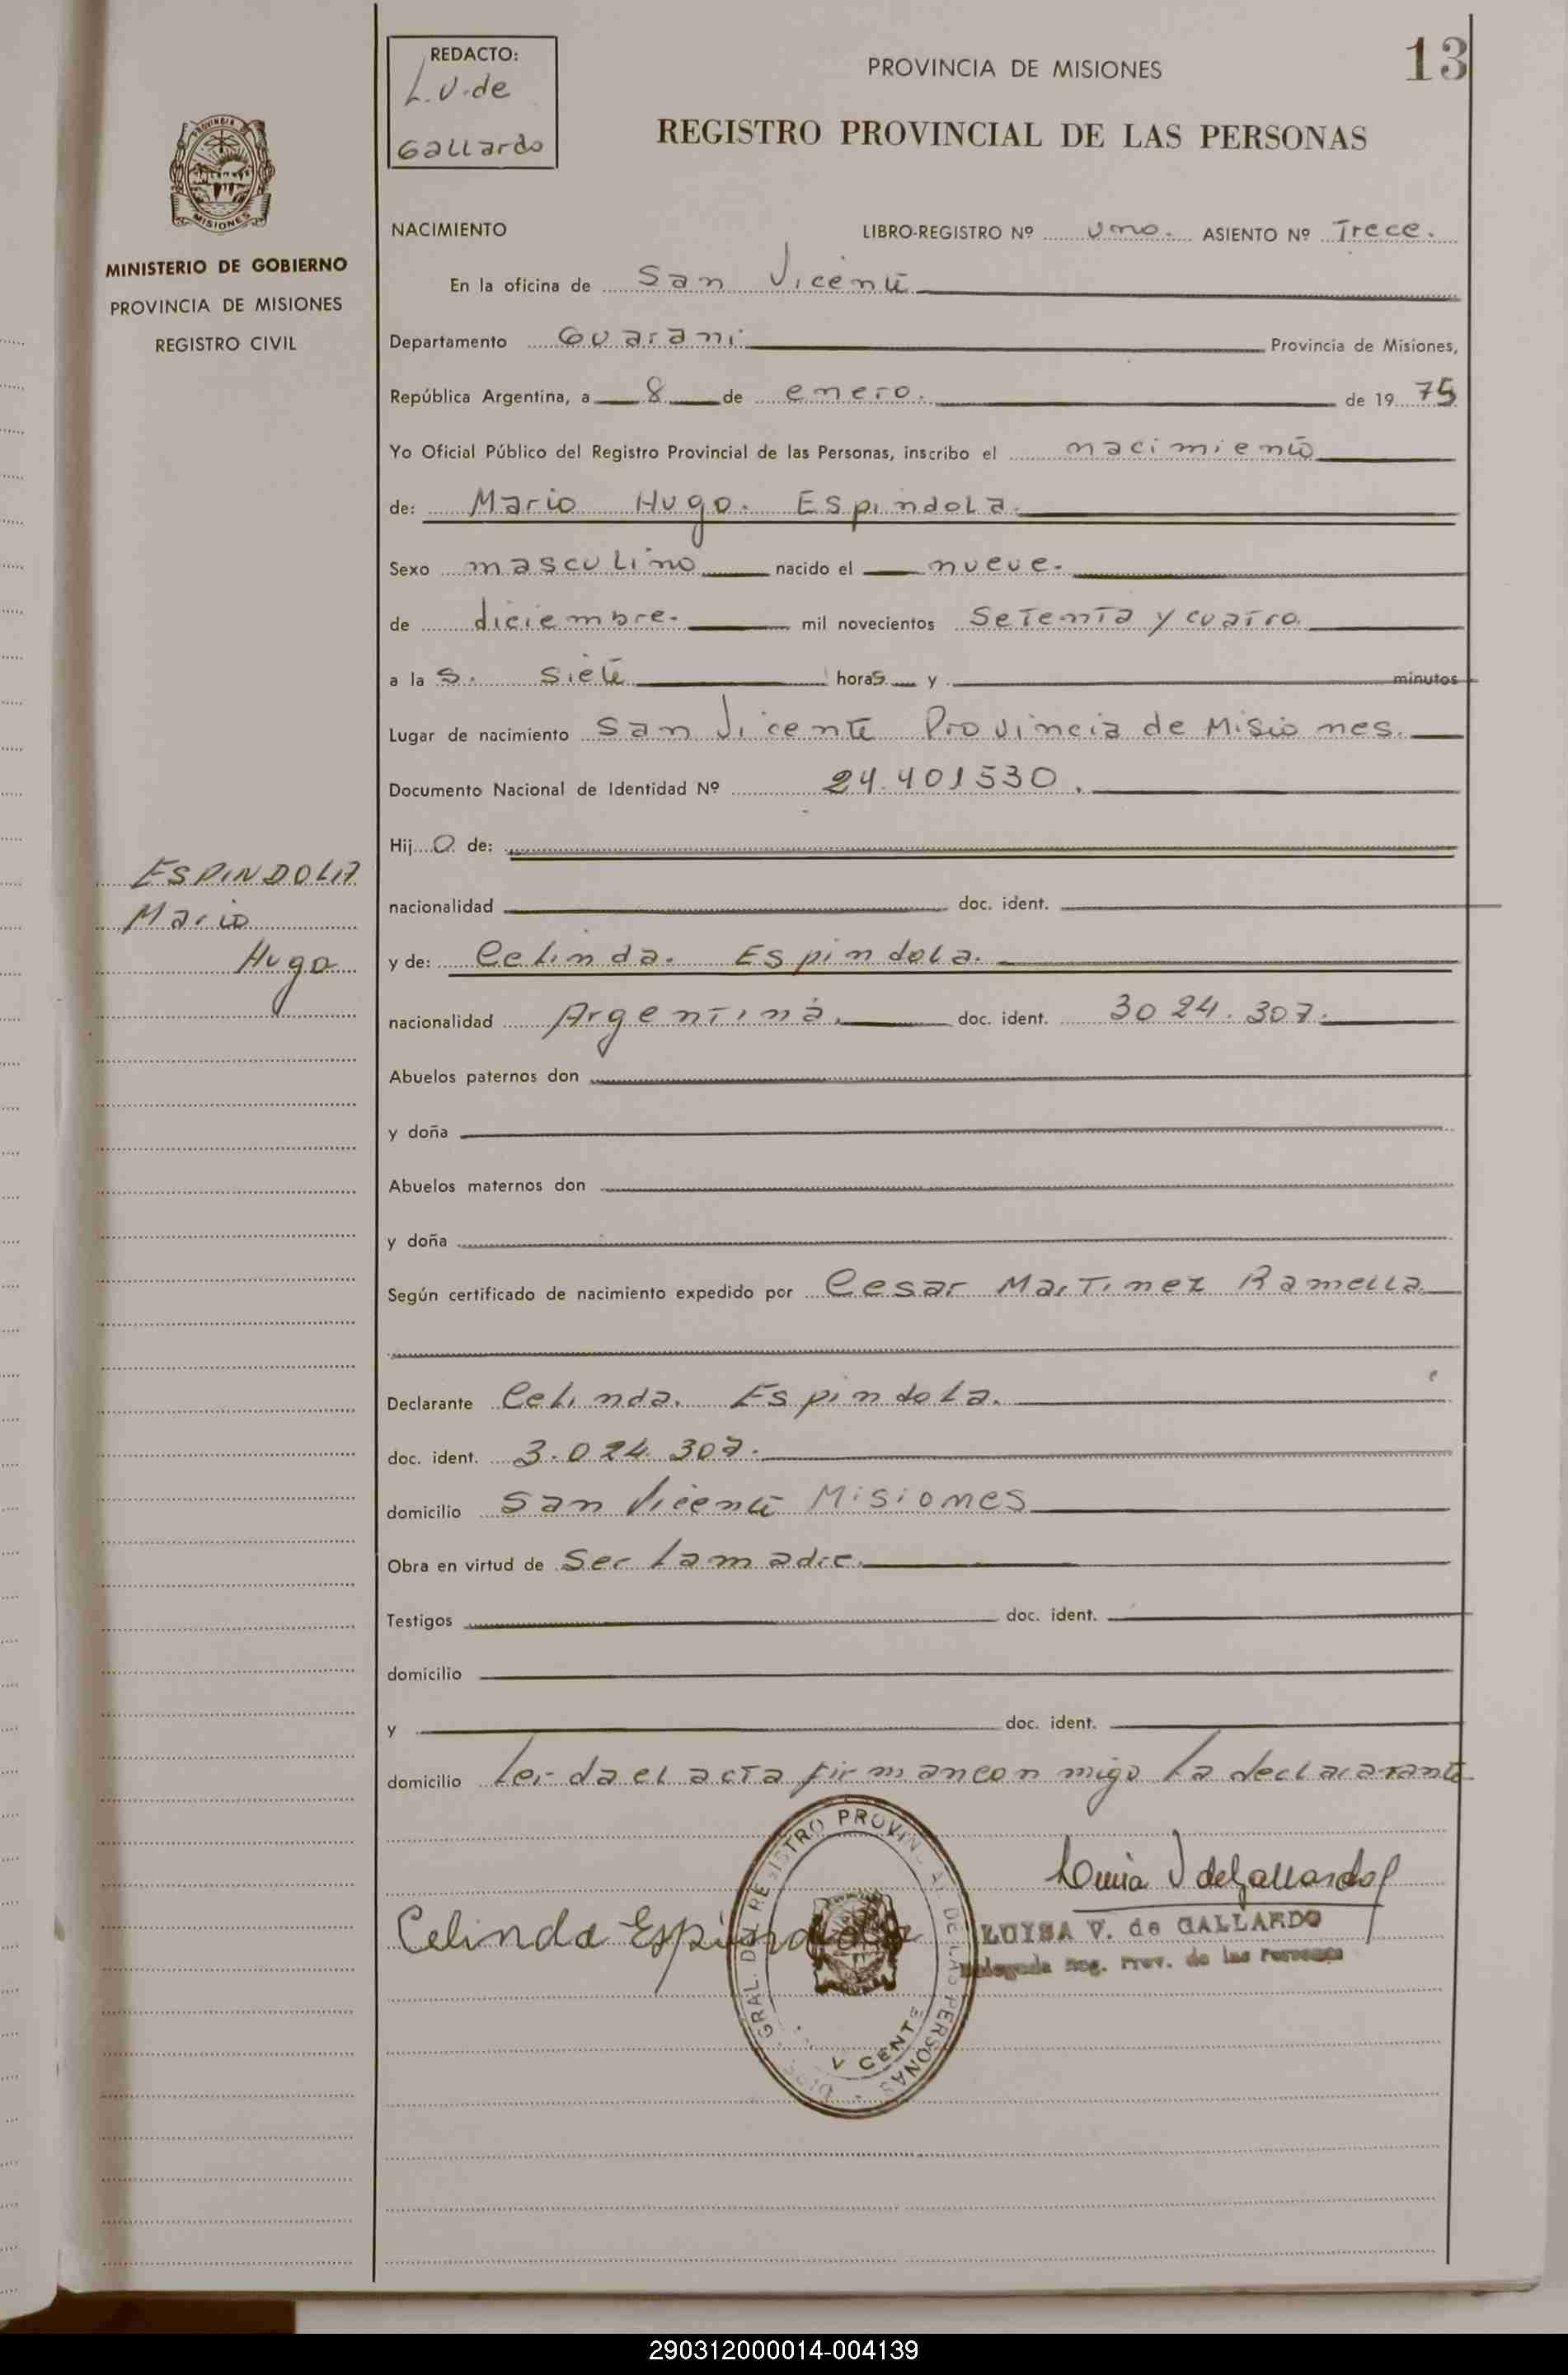 REDACTO:
L.V. de
Gallardo
PROVINCIA DE MISIONES
13
REGISTRO PROVINCIAL DE LAS PERSONAS
MISIONES
MINISTERIO DE GOBIERNO
PROVINCIA DE MISIONES
REGISTRO CIVIL
NACIMIENTO
LIBRO-REGISTRO Nº Uno. ASIENTO Nº Trece.
En la oficina de San Vicente
Departamento Guarani Provincia de Misiones,
República Argentina, a 8 de enero. de 1975
Yo Oficial Público del Registro Provincial de las Personas, inscribo el nacimiento
de: Mario Hugo. Espindola.
Sexo masculino nacido el nueve.
de diciembre. mil novecientos Setenta y cuatro.
a las. siete horas y minutos
Lugar de nacimiento San Vicente Provincia de Misiones.
Documento Nacional de Identidad Nº 24.401530.
Hijo de:
nacionalidad doc. ident.
ESPINDOLA
Mario
Hugo
y de: Celinda. Espindola.
nacionalidad Argentina. doc. ident. 3024.307.
Abuelos paternos don
y doña
Abuelos maternos don
y doña
Según certificado de nacimiento expedido por Cesar Martinez Ramella.
Declarante Celinda. Espindola.
doc. ident. 3.024.307.
domicilio San Vicente Misiones
Obra en virtud de Ser la madre.
Testigos doc. ident.
domicilio
y doc. ident.
domicilio Leida el acta firman conmigo la declararante
Celinda Espindola
Luisa V de Gallardo
LUISA V. de GALLARDO
Delegada Reg. Prov. de las Personas
GRAL. DEL REGISTRO PROVINCIAL DE LAS PERSONAS
VICENTE
290312000014-004139